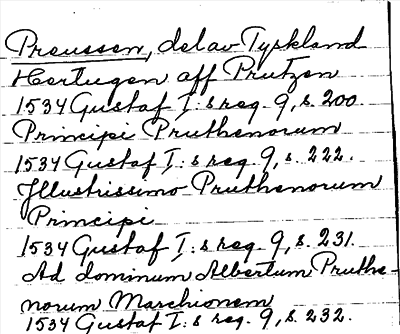 Preussen, del av Tyskland
Hertugen aff Prutzen
1534 Gustaf I:s reg. 9, s. 200.
Principi Pruthenorum
1534 Gustaf I:s reg. 9, s. 222.
Jllustrissimo Pruthenorum
Principi
1534 Gustaf I:s reg. 9, s. 231.
Ad dominum Albertum Pruthe-
norum Marchionem
1534 Gustaf I:s reg. 9, s. 232.